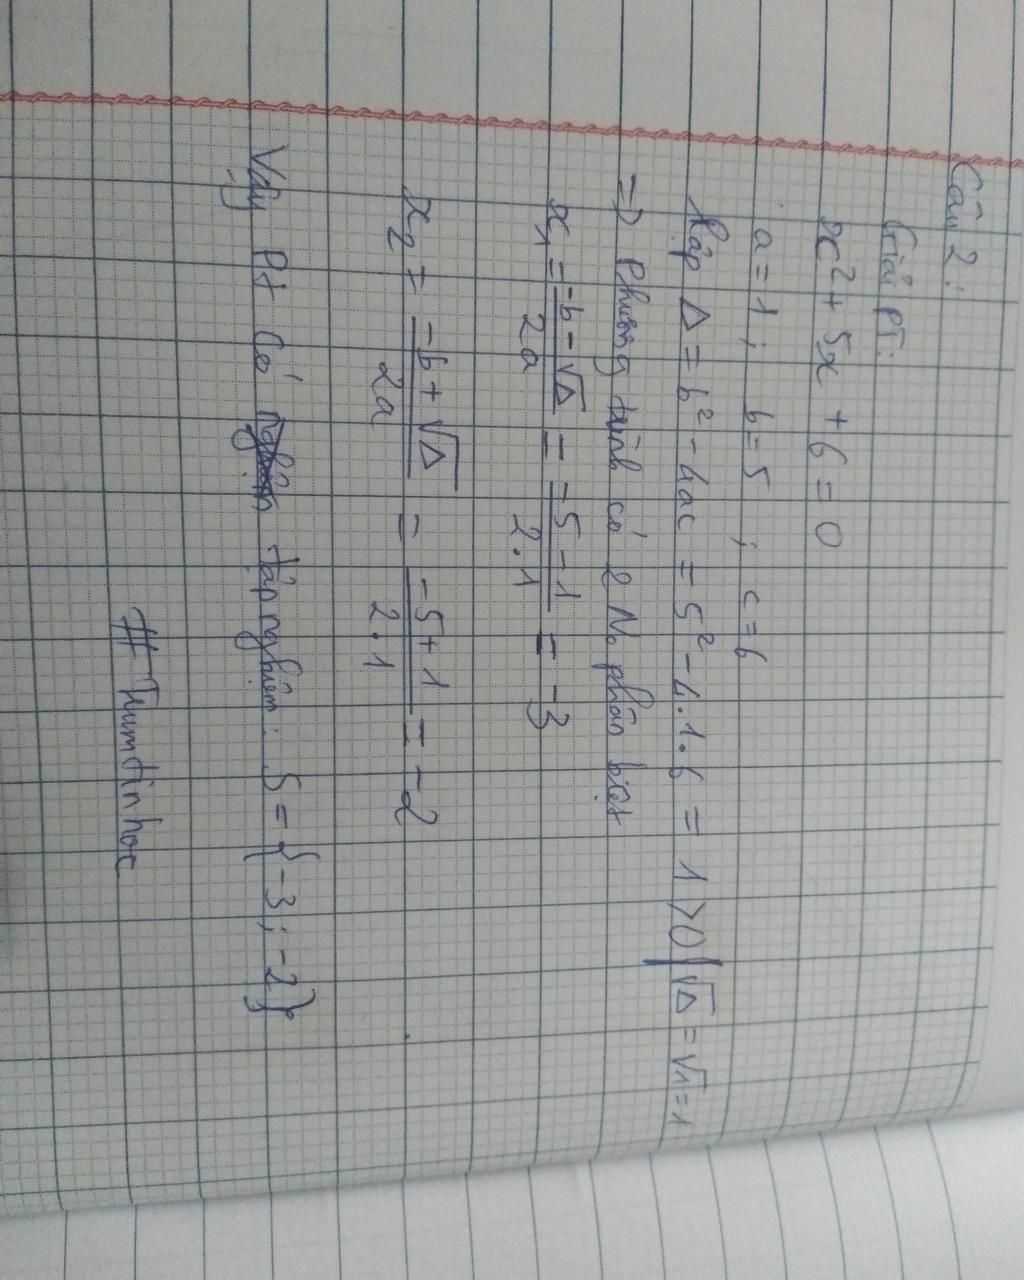 Câu 2:
Giải PT:
x² + 5x + 6 = 0
a = 1 ; b = 5 ; c = 6
Lập Δ = b² - 4ac = 5² - 4.1.6 = 1 > 0 | √Δ = √1 = 1
=> Phương trình có 2 No phân biệt
x₁ = (-b - √Δ)/(2a) = (-5 - 1)/(2.1) = -3
x₂ = (-b + √Δ)/(2a) = (-5 + 1)/(2.1) = -2
Vậy Pt có tập nghiệm: S = {-3; -2}